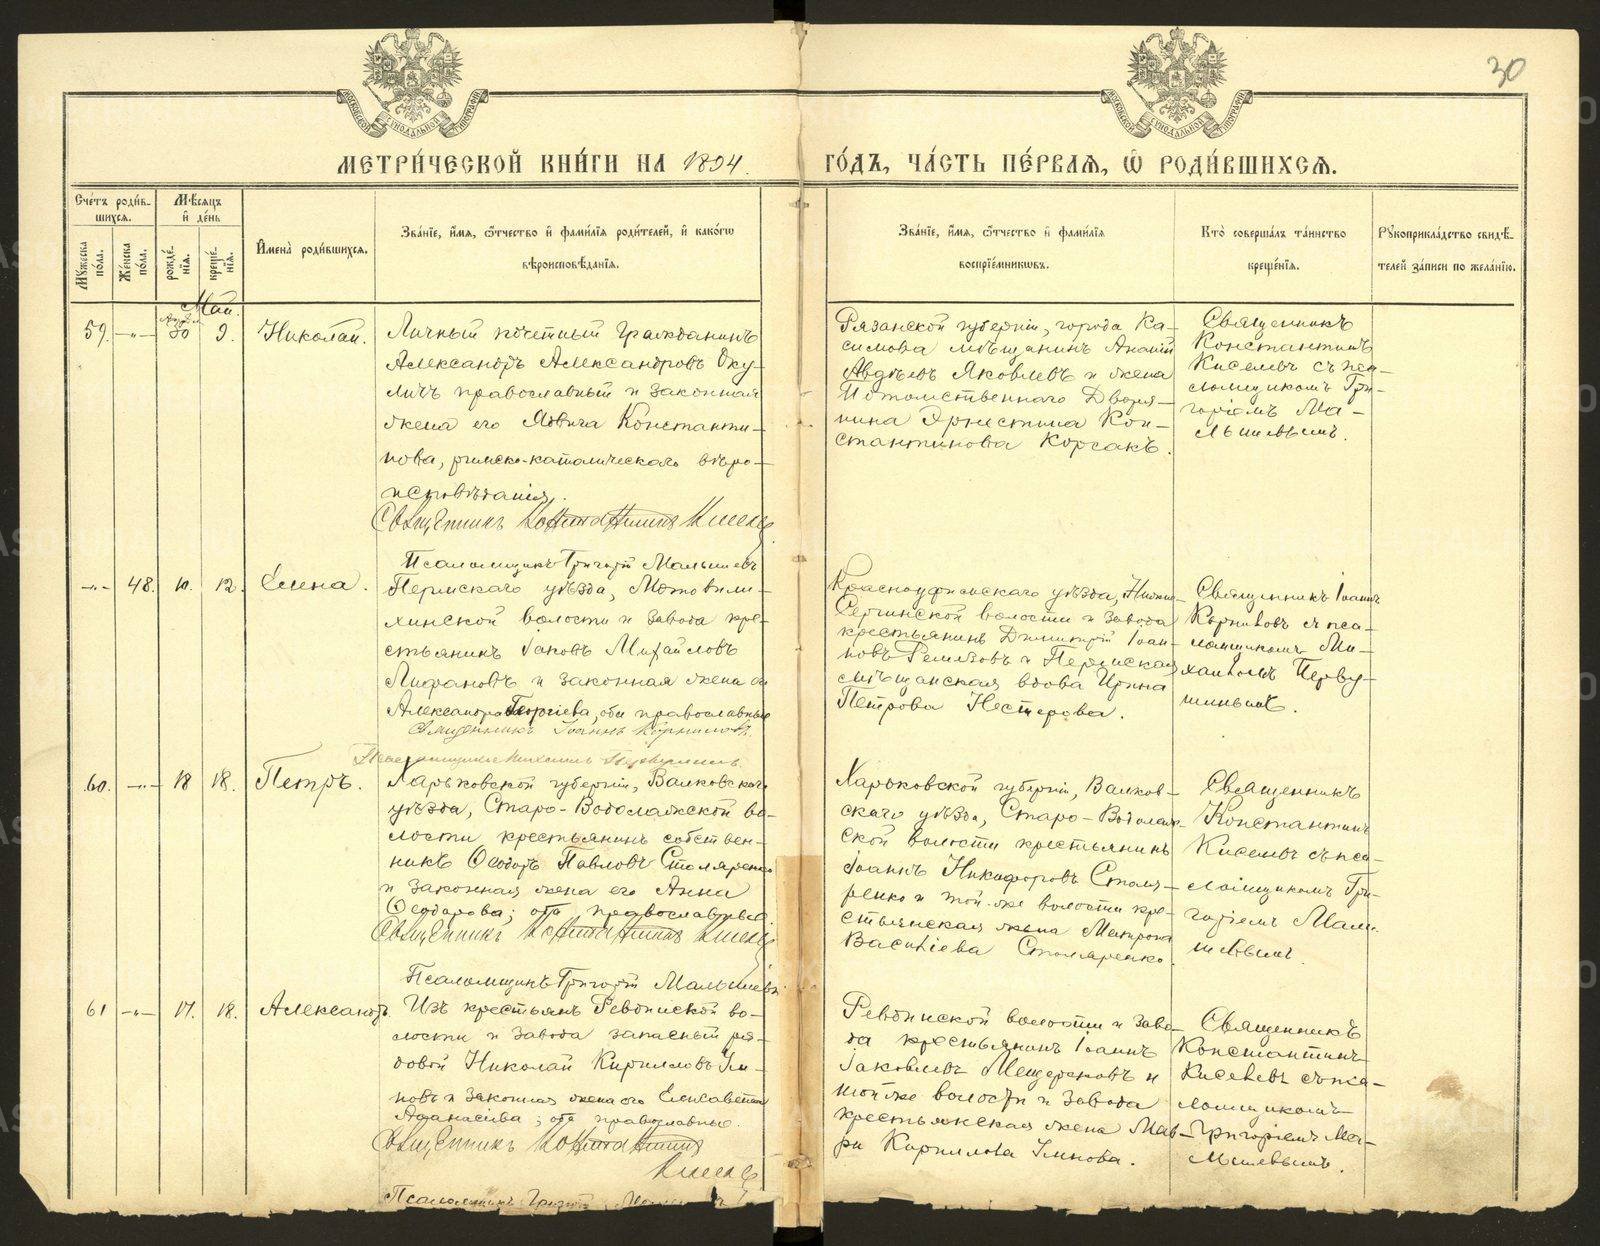 30
МЕТРИ́ЧЕСКОЙ КНИ́ГИ НА 1894.
ГО́ДЪ, ЧА́СТЬ ПЕ́РВАѦ, Ѿ РОДИ́ВШИХСѦ.
Сче́тъ роди́в-
шихся.
Мѣ́сяцъ
и̂ де́нь
Мꙋ́жеска
по́ла.
Же́нска
по́ла.
рожде́-
нїя.
креще́-
нїя.
И̂мена̀ роди́вшихся.
Зва́нїе, и̂́мя, ѻ҆́тчество и̂ фами́лїя роди́телей, и̂ како́гѡ
вѣроисповѣ́данїя.
Зва́нїе, и̂́мя, ѻ҆́тчество и̂ фами́лїя
воспрїе́мниковъ.
Кто̀ соверша́лъ та́инство
креще́нїя.
Рꙋкоприкла́дство свидѣ́-
телей за́писи по жела́нїю.
Май.
59. —"— Апрѣля 30 9. Николай.
Личный почетный Гражданинъ
Александръ Александровъ Оку-
личъ православный и законная
жена его Ядвига Константи-
нова, римско-католическаго вѣро-
исповѣданія.
Священникъ Константинъ Киселевъ
Псаломщикъ Григорій Малышевъ
Рязанской губерніи, города Ка-
симова мѣщанинъ
Авдѣевъ Яковлевъ и жена
Потомственнаго Дворя-
нина Эрнестина Кон-
стантинова Корсакъ.
Священникъ
Константинъ
Киселевъ съ пса-
ломщикомъ Гри-
горіемъ Ма-
лышевымъ.
—"— 48. 10. 12. Елена.
Пермскаго уѣзда, Мотовили-
хинской волости и завода кре-
стьянинъ Іаковъ Михайловъ
Лифановъ и законная жена его
Александра Георгіева, оба православные
Священникъ Іоаннъ Корниловъ
Псаломщикъ Михаилъ Первушинъ.
Красноуфимскаго уѣзда, Нижне-
Сергинской волости и завода
крестьянинъ Димитрій Іоан-
новъ Ремезовъ и Пермская
мѣщанская вдова Ирина
Петрова Нестерова.
Священникъ Іоаннъ
Корниловъ съ пса-
ломщикомъ Ми-
хаиломъ Перву-
шинымъ.
60. —"— 18 18. Петръ.
Харьковской губерніи, Валковскаго
уѣзда, Старо-Водолажской во-
лости крестьянинъ собствен-
никъ Ѳеодоръ Павловъ Столяренко
и законная жена его Анна
Ѳеодорова; оба православные.
Священникъ Константинъ Киселевъ
Псаломщикъ Григорій Малышевъ
Харьковской губерніи, Валков-
скаго уѣзда, Старо-Водолаж-
ской волости крестьянинъ
Іоаннъ Никифоровъ Столя-
ренко и той-же волости кре-
стьянская жена Матрона
Васильева Столяренко.
Священникъ
Константинъ
Киселевъ съ пса-
ломщикомъ Гри-
горіемъ Малы-
шевымъ.
61 —"— 17. 18. Александръ.
Изъ крестьянъ Ревдинской во-
лости и завода запасный ря-
довой Николай Кирилловъ Ум-
новъ и законная жена его Елисавета
Аѳанасіева; оба православные.
Священникъ Константинъ
Киселевъ
Псаломщикъ Григорій Малышевъ
Ревдинской волости и заво-
да крестьянинъ Іоаннъ
Іаковлевъ Мещеряковъ и
той-же волости и завода
крестьянская жена Мав-
ра Кириллова Умнова.
Священникъ
Константинъ
Киселевъ съ пса-
ломщикомъ
Григоріемъ Ма-
лышевымъ.